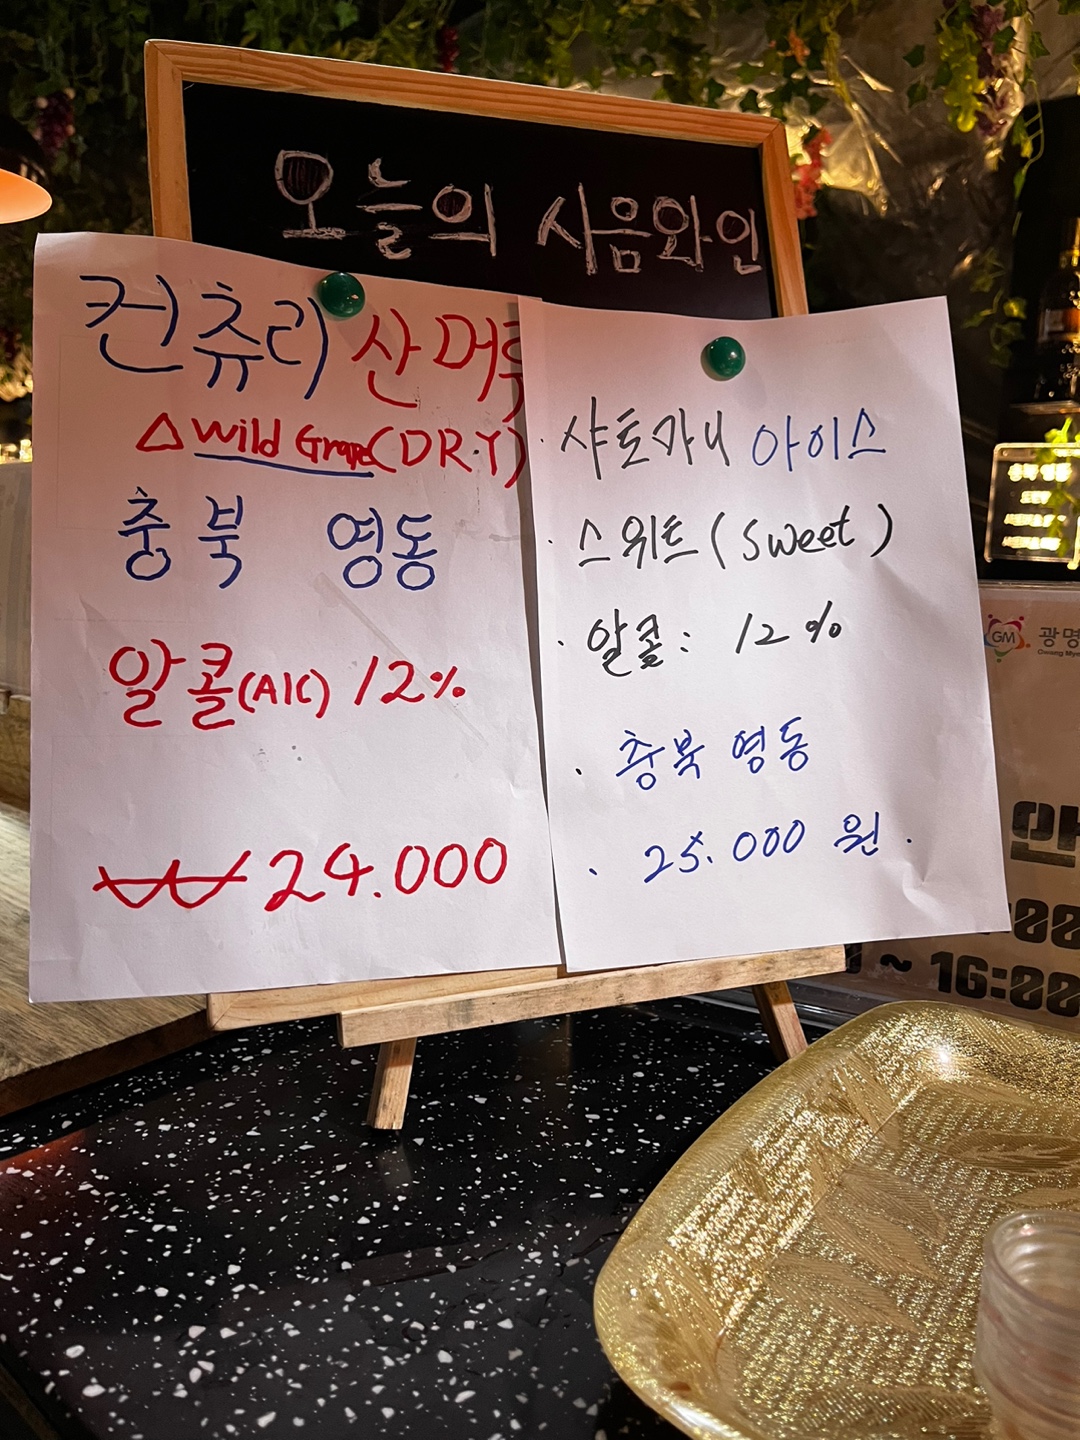 오늘의 시음와인
컨츄리 산머루
△ Wild Grape (DRY)
충북 영동
알콜(Alc) 12%
₩24.000
· 샤토가니 아이스
· 스위트 (Sweet)
· 알콜 : 12%
· 충북 영동
· 25.000 원.
GM 광명
Gwang Myeong
~ 16:00